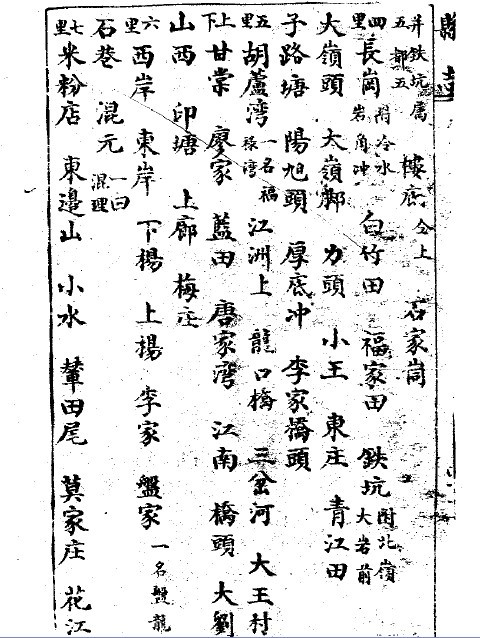 縣志
并鉄坑属五都五 樓底仝上 石家崗
四里長崗附冷水岩角冲 白竹田 福家田 鉄坑附北嶺大岩前
大嶺頭 大嶺鄉 力頭 小王 東庄 青江田
子路塘 陽旭頭 厚底冲 李家橋頭
五里胡蘆湾一名福祿湾 江洲上 龍口橋 三岔河 大王村
上下甘棠 廖家 藍田 唐家湾 江南 橋頭 大劉
山西 印塘 上廊 梅庄
六里西岸 東岸 下楊 上楊 李家 盤家一名盤龍
石巷 混元一曰混理
七里米粉店 東邊山 小水 輦田尾 莫家庄 花江